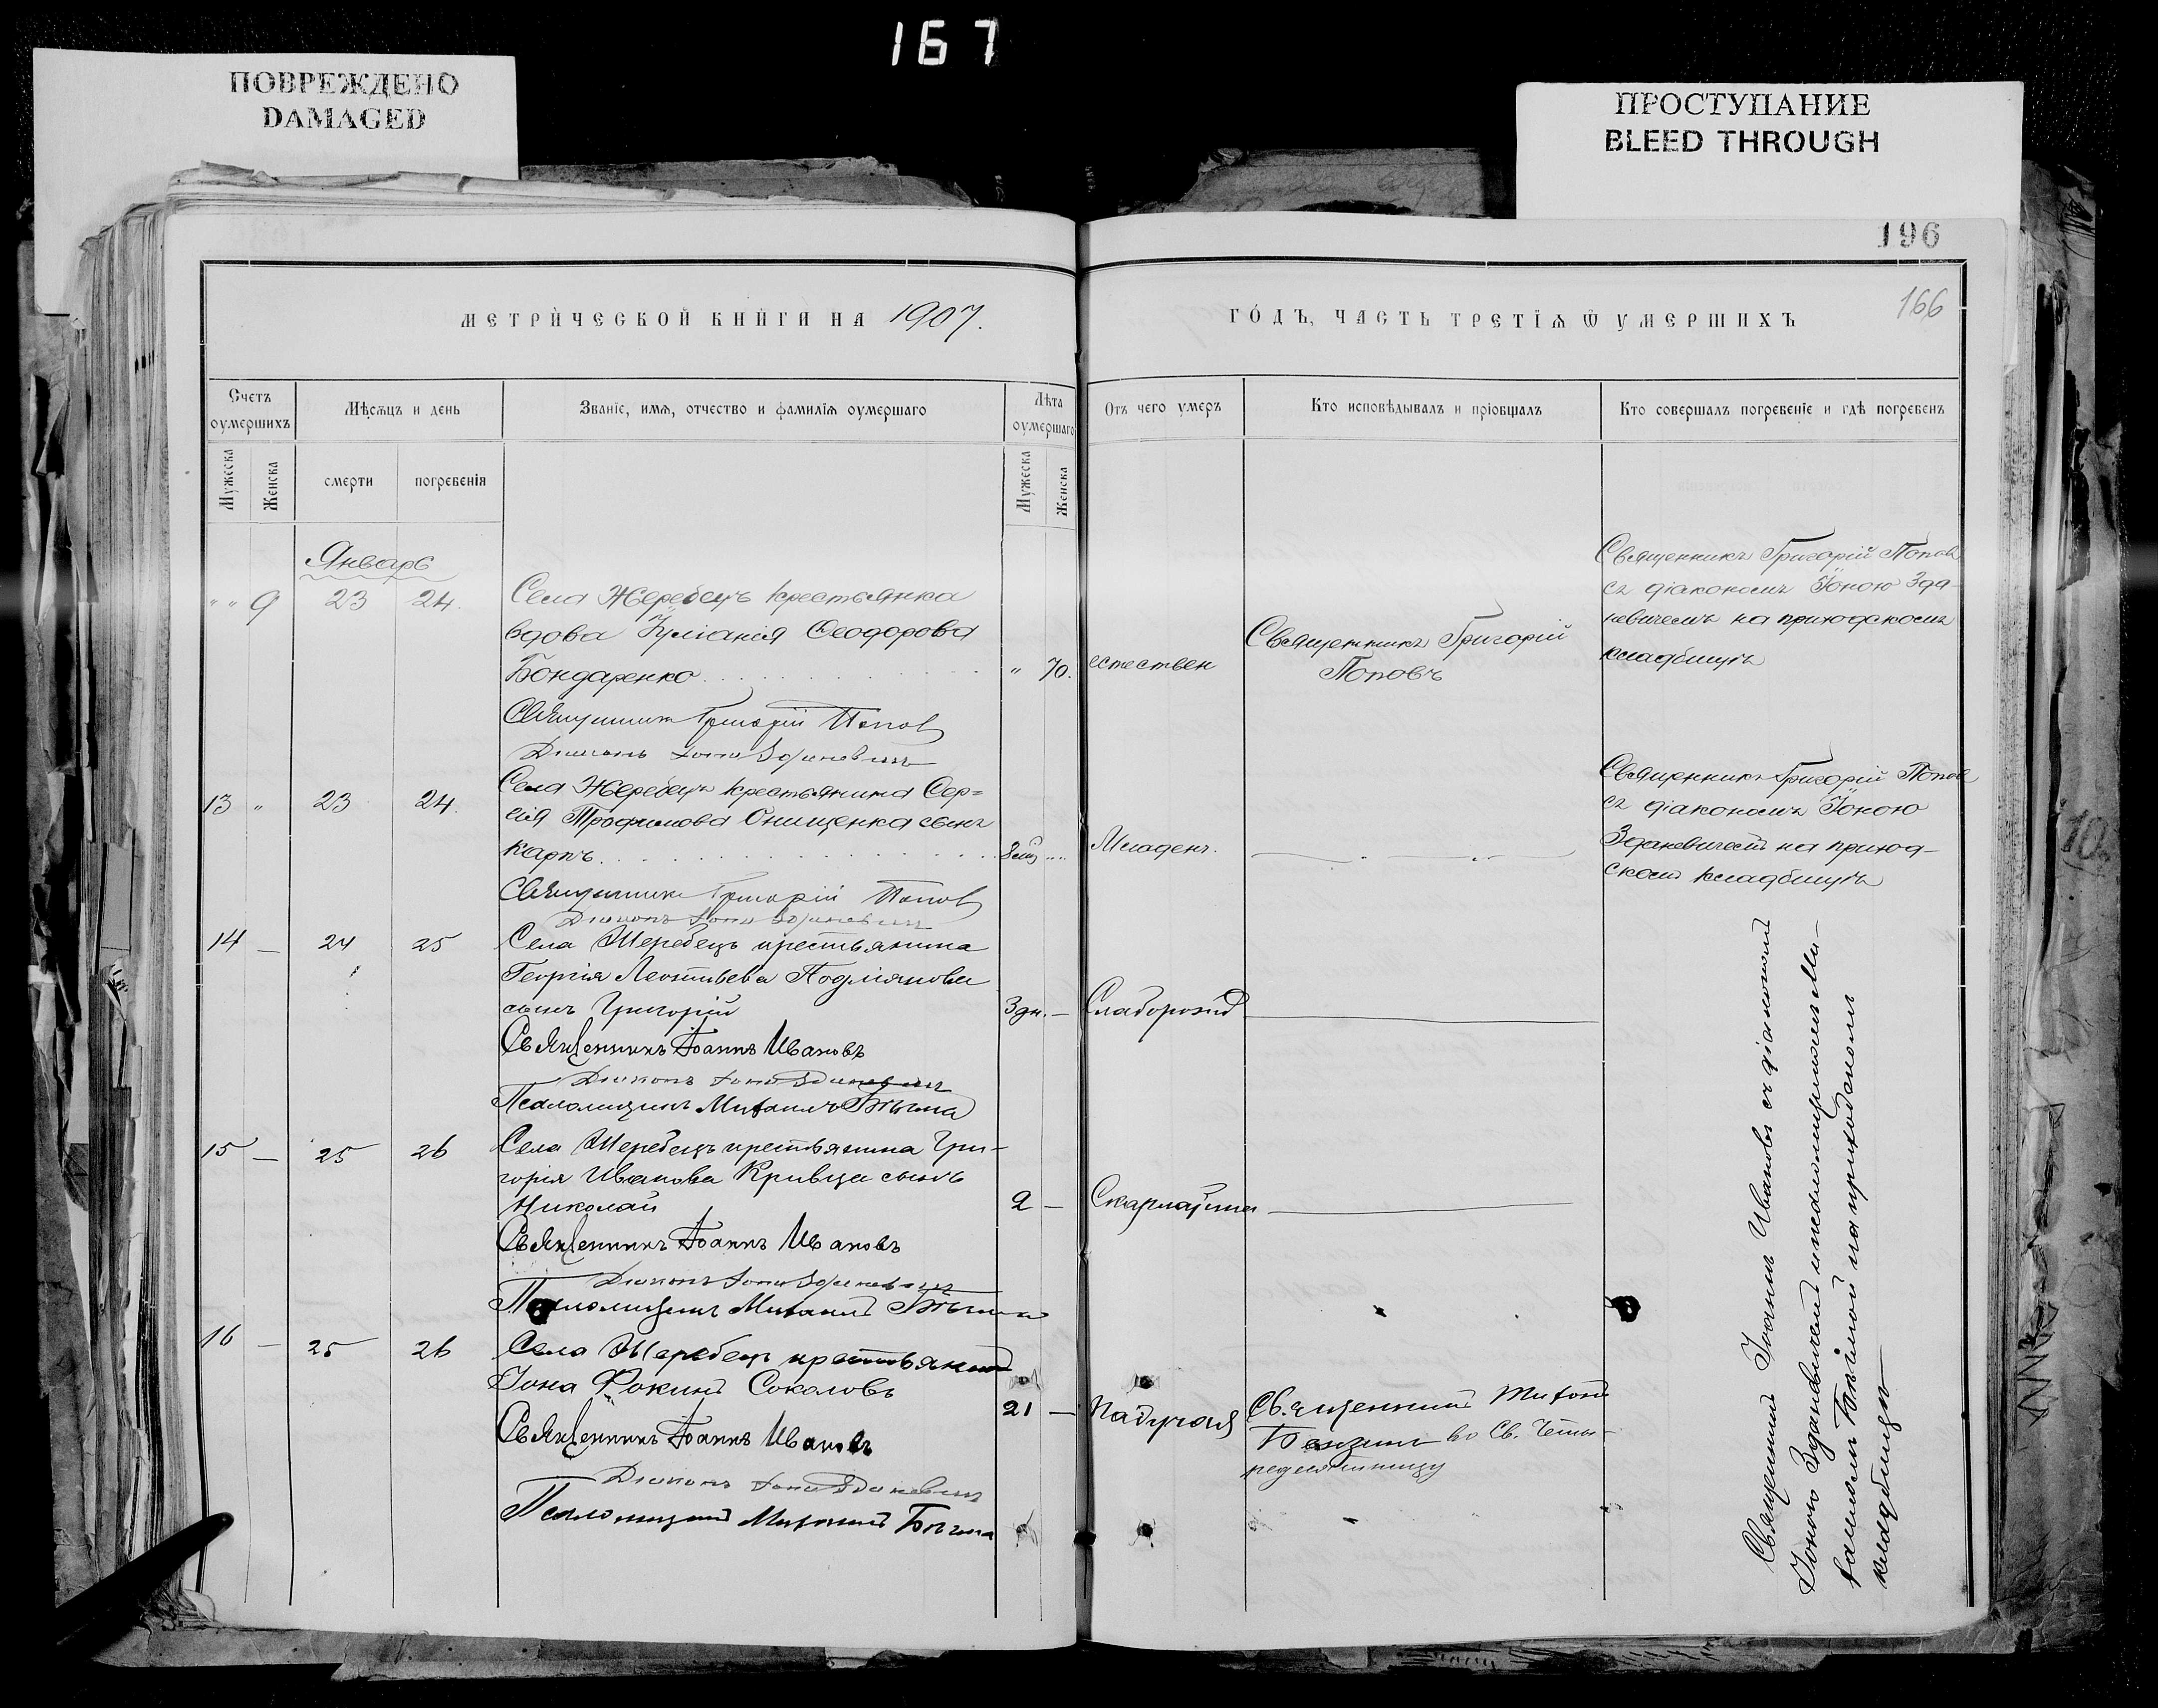 167
ПОВРЕЖДЕНО
DAMAGED
ПРОСТУПАНИЕ
BLEED THROUGH
196
166
МЕТРИЧЕСКОЙ КНИГИ НА 1907.
ГОДЪ, ЧАСТЬ ТРЕТІѦ Ѿ УМЕРШИХЪ
Счетъ оумершихъ
Мѣсѧцъ и день
Званіе, имѧ, отчество и фамилїѧ оумершаго
Лѣта оумершаго
Отъ чего умеръ
Кто исповѣдывалъ и прїобщалъ
Кто совершалъ погребенїе и гдѣ погребенъ
Мужеска
Женска
смерти
погребенїя
Мужеска
Женска
Январь
" " 9 23 24.
Села Жеребецъ крестьянка
вдова Іуліанія Ѳеодорова
Бондаренко
" 70.
естествен
Священникъ Григорій
Поповъ
Священникъ Григорій Попов
съ діакономъ Іоною Зда-
невичемъ на приходскомъ
кладбищѣ
Священникъ Григорій Попов
Діаконъ Іона Зданевичъ
13 " 23 24.
Села Жеребецъ крестьянина Сер-
гія Трофимова Онищенка сынъ
Карпъ
Младенч.
Священникъ Григорій Попов
съ діакономъ Іоною
Зданевичемъ на приход-
скомъ кладбищѣ
Священникъ Григорій Попов
Діаконъ Іона Зданевичъ
14 — 24 25
Села Жеребецъ крестьянина
Георгія Леонтьева
сынъ Григорій
3 дн. —
Слаборожд
Священникъ Іоаннъ Ивановъ
Діаконъ Іона Зданевичъ
Псаломщикъ Михаилъ Бѣгма
15 — 25 26
Села Жеребецъ крестьянина Гри-
горія Иванова Кривца сынъ
Николай
2 —
Скарлатина
Священникъ Іоаннъ Ивановъ
Діаконъ Іона Зданевичъ
Псаломщикъ Михаилъ Бѣгма
16 — 25 26
Села Жеребецъ крестьянинъ
Іона Фокинъ Соколовъ
21 —
Падучая
Священникъ Тихонъ
во Св. Четы-
редесятницу
Священникъ Іоаннъ Ивановъ
Діаконъ Іона Зданевичъ
Псаломщикъ Михаилъ Бѣгма
Священникъ Іоаннъ Ивановъ съ діакономъ
Іоною Зданевичемъ и псаломщикомъ Ми-
хаиломъ Бѣгмой на приходскомъ
кладбищѣ